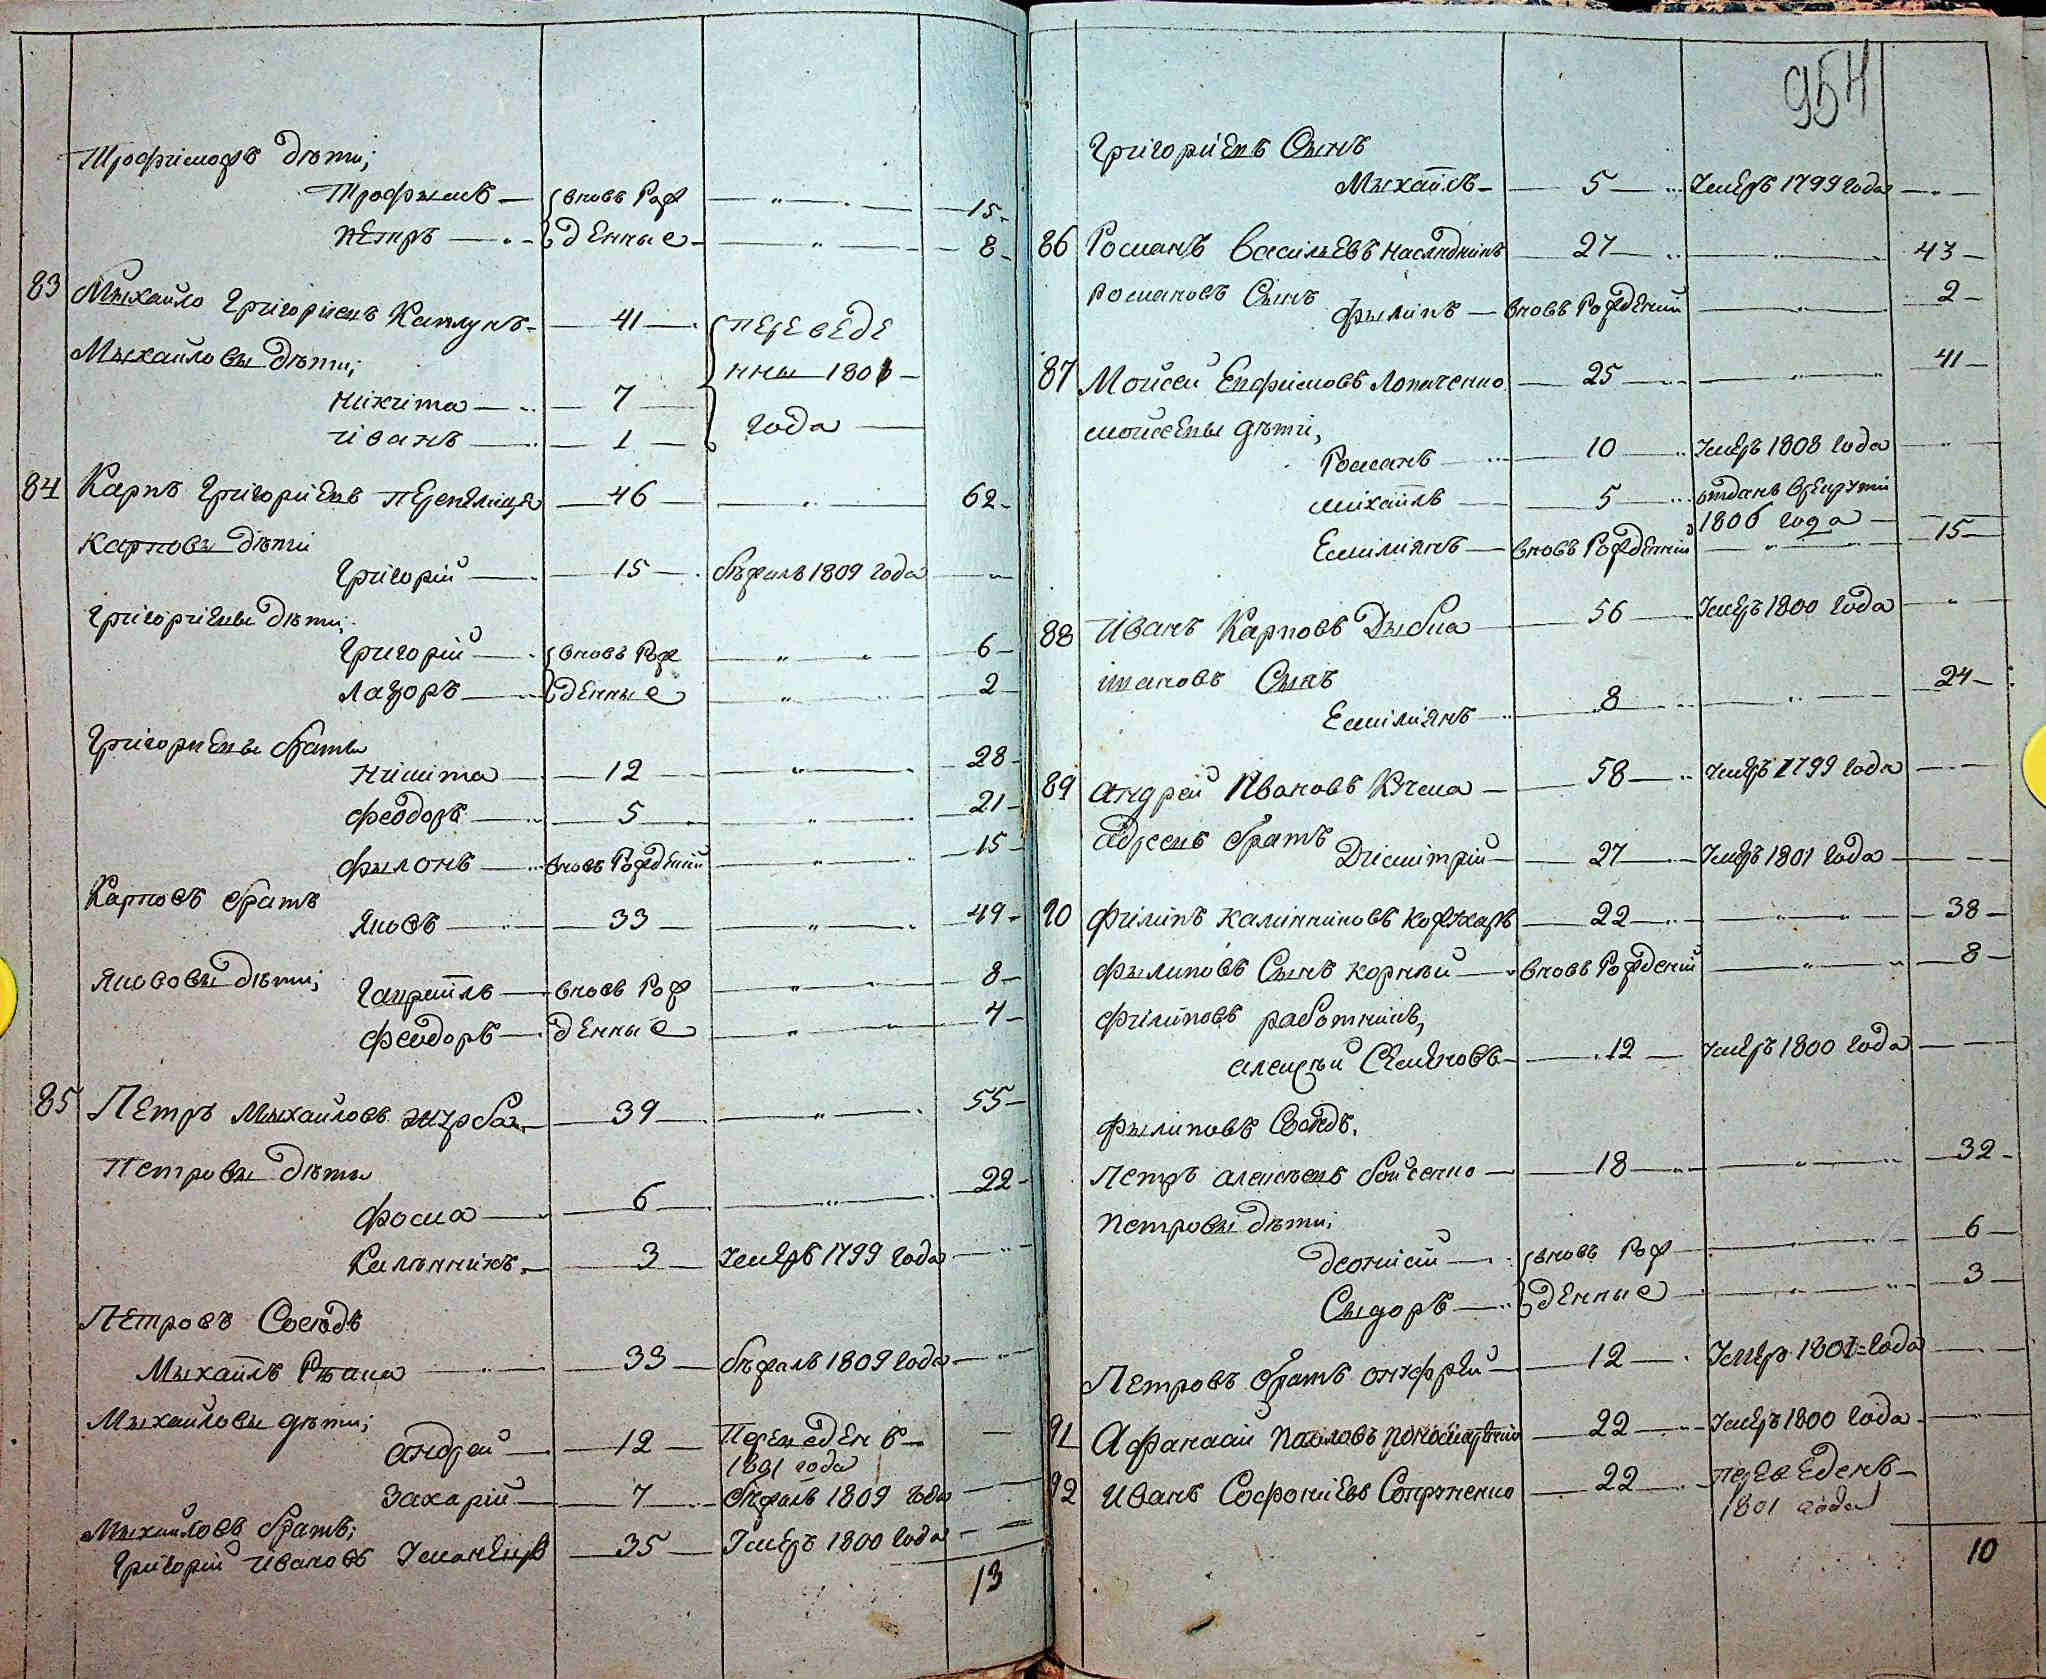 Трофимовъ дѣти;
Трофымъ — вновь рож — " — 15
Петръ — денные — " — 8
83 Мыхайло Григориевъ Каплунъ — 41 — переведе
Мыхайловы дѣти;
нны 1801
Никита — 7
года
Иванъ — 1
84 Карпъ Григориевъ Перепелиця — 46 — " — 62
Карповы дѣти
Григорій — 15 — бѣжалъ 1809 года — "
Григориевы дѣти;
Григорій — вновь рож — " — 6
Лазоръ — денные — " — 2
Григориевы браты
Никита — 12 — " — 28
Феодоръ — 5 — " — 21
Фылонъ — вновь рожденій — " — 15
Карповъ братъ
Яковъ — 33 — " — 49
Якововы дѣти; Гавриилъ — вновь рож — " — 8
Феодоръ — денные — " — 4
85 Петръ Мыхайловъ — 39 — " — 55
Петровы дѣти
Фома — 6 — " — 22
Калынникъ — 3 — умеръ 1799 года — "
Петровъ Сосѣдъ
Мыхаилъ — 33 — бѣжалъ 1809 года — "
Мыхайловы дѣти;
Андрей — 12 — Переведенъ —
1801 года
Захарій — 7 — бѣжалъ 1809 года —
Мыхайловъ братъ;
Григорій Ивановъ — 35 — умеръ 1800 года —
13
954
Григориевъ Сынъ
Мыхаилъ — 5 — умеръ 1799 года — "
86 Романъ Васильевъ Наслѣдникъ — 27 — " — 43
Романовъ Сынъ
Фылипъ — вновь рожденій — " — 2
87 Моисей Ефимовъ Лопатенко — 25 — " — 41
Мойсеевы дѣти,
Романъ — 10 — умеръ 1808 года — "
Михаилъ — 5 — отданъ врекруты
1806 года —
Емилиянъ — вновь рожденній — " — 15
88 Иванъ Карповъ Дыбка — 56 — умеръ 1800 года — "
Ивановъ Сынъ
Емилиянъ — 8 — " — 24
89 Андрей Ивановъ Кучма — 58 — умеръ 1799 года — "
Адреевъ братъ
Дмитрій — 27 — умеръ 1801 года —
90 Филипъ Калинниковъ Коржаръ — 22 — " — 38
Фылиповъ Сынъ Корнѣй — вновь рожденій — " — 8
Филиповъ работникъ,
Алексѣй Семеновъ — 12 — умеръ 1800 года —
Фылиповъ Сосѣдъ.
Петръ Алексѣевъ Бойченко — 18 — " — 32
Петровы дѣти;
Деонисий — вновь рож — " — 6
Сыдоръ — денные — " — 3
Петровъ братъ Онуфрей — 12 — умеръ 1801 года —
91 Афанасий Павловъ — 22 — умеръ 1800 года —
92 Иванъ Софониевъ Сопруненко — 22 — переведенъ —
1801 года
10